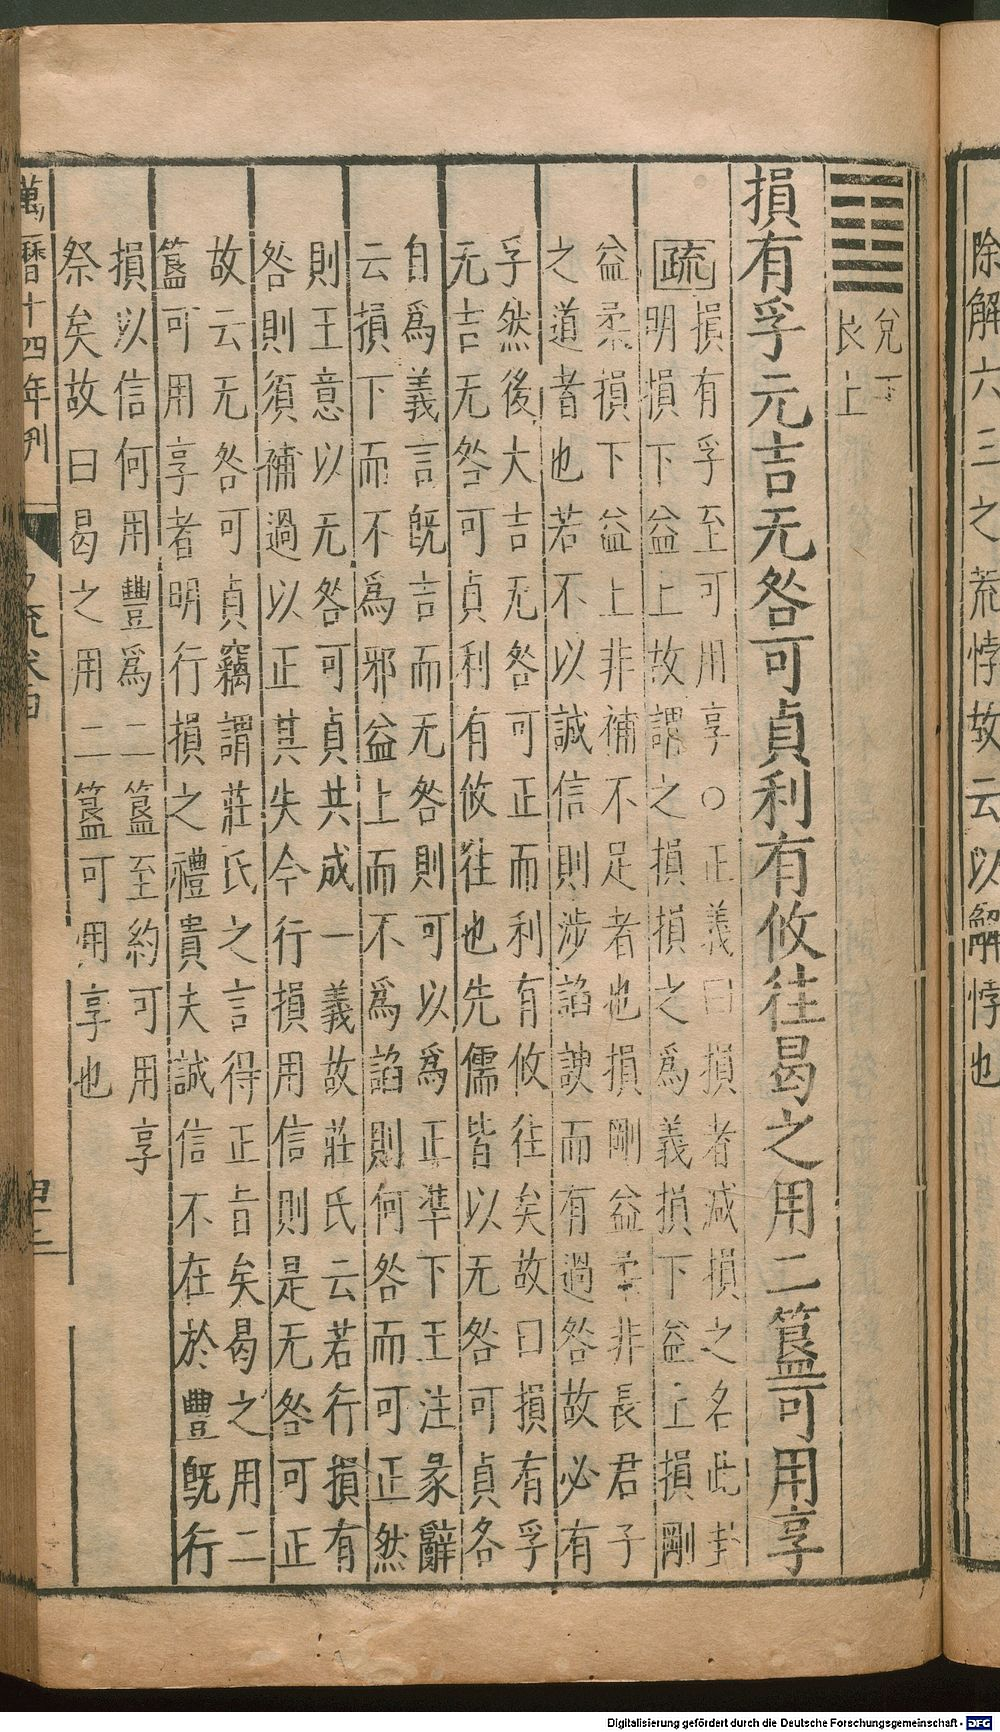 除解六三之荒悖故云以解悖也
兌下
艮上
損有孚元吉无咎可貞利有攸往曷之用二簋可用享
疏
損有孚至可用享○正義曰損者減損之名此卦
明損下益上故謂之損損之為義損下益上損剛
益柔損下益上非補不足者也損剛益柔非長君子
之道者也若不以誠信則涉諂諛而有過咎故必有
孚然後大吉无咎可正而利有攸往矣故曰損有孚
元吉无咎可貞利有攸往也先儒皆以无咎可貞各
自爲義言旣言而无咎則可以爲正準下王注彖辭
云損下而不爲邪益上而不爲諂則何咎而可正然
則王意以无咎可貞共成一義故莊氏云若行損有
咎則須補過以正其失今行損用信則是无咎可正
故云无咎可貞竊謂莊氏之言得正旨矣曷之用二
簋可用享者明行損之禮貴夫誠信不在於豐旣行
損以信何用豐爲二簋至約可用享
祭矣故曰曷之用二簋可用享也
萬曆十四年刊
Digitalisierung gefördert durch die Deutsche Forschungsgemeinschaft - DFG